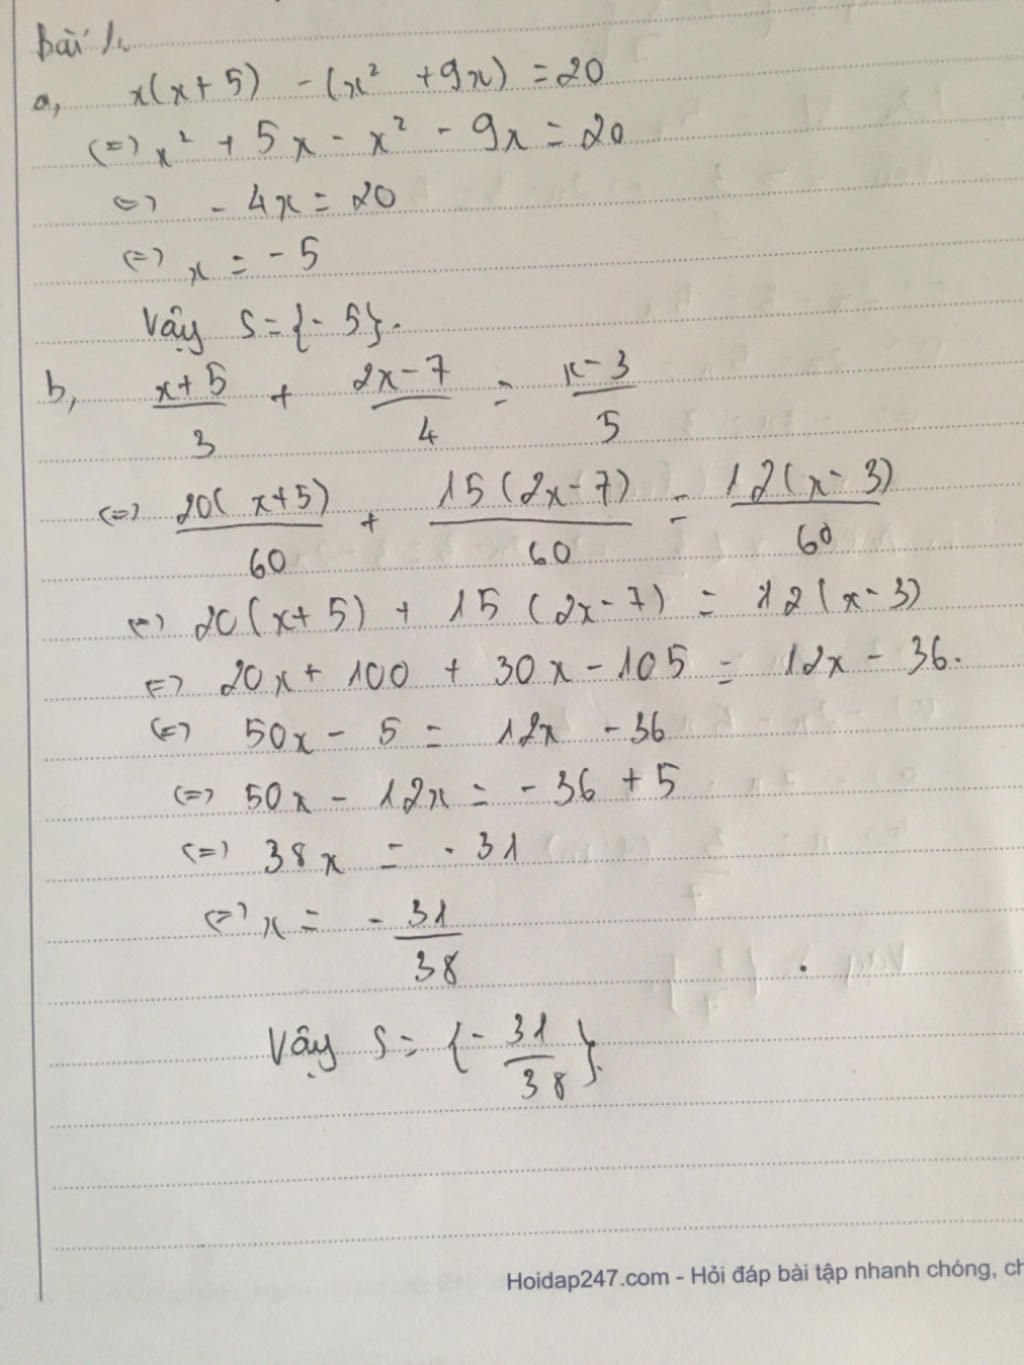 Bài 1.
a, x(x+5) - (x² + 9x) = 20
(=) x² + 5x - x² - 9x = 20
(=) - 4x = 20
(=) x = - 5
Vậy S = {- 5}.
b, \frac{x+5}{3} + \frac{2x-7}{4} = \frac{x-3}{5}
(=) \frac{20(x+5)}{60} + \frac{15(2x-7)}{60} = \frac{12(x-3)}{60}
(=) 20(x+5) + 15(2x-7) = 12(x-3)
(=) 20x + 100 + 30x - 105 = 12x - 36.
(=) 50x - 5 = 12x - 36
(=) 50x - 12x = - 36 + 5
(=) 38x = - 31
(=) x = - \frac{31}{38}
Vậy S = {- \frac{31}{38}}.
Hoidap247.com - Hỏi đáp bài tập nhanh chóng, ch